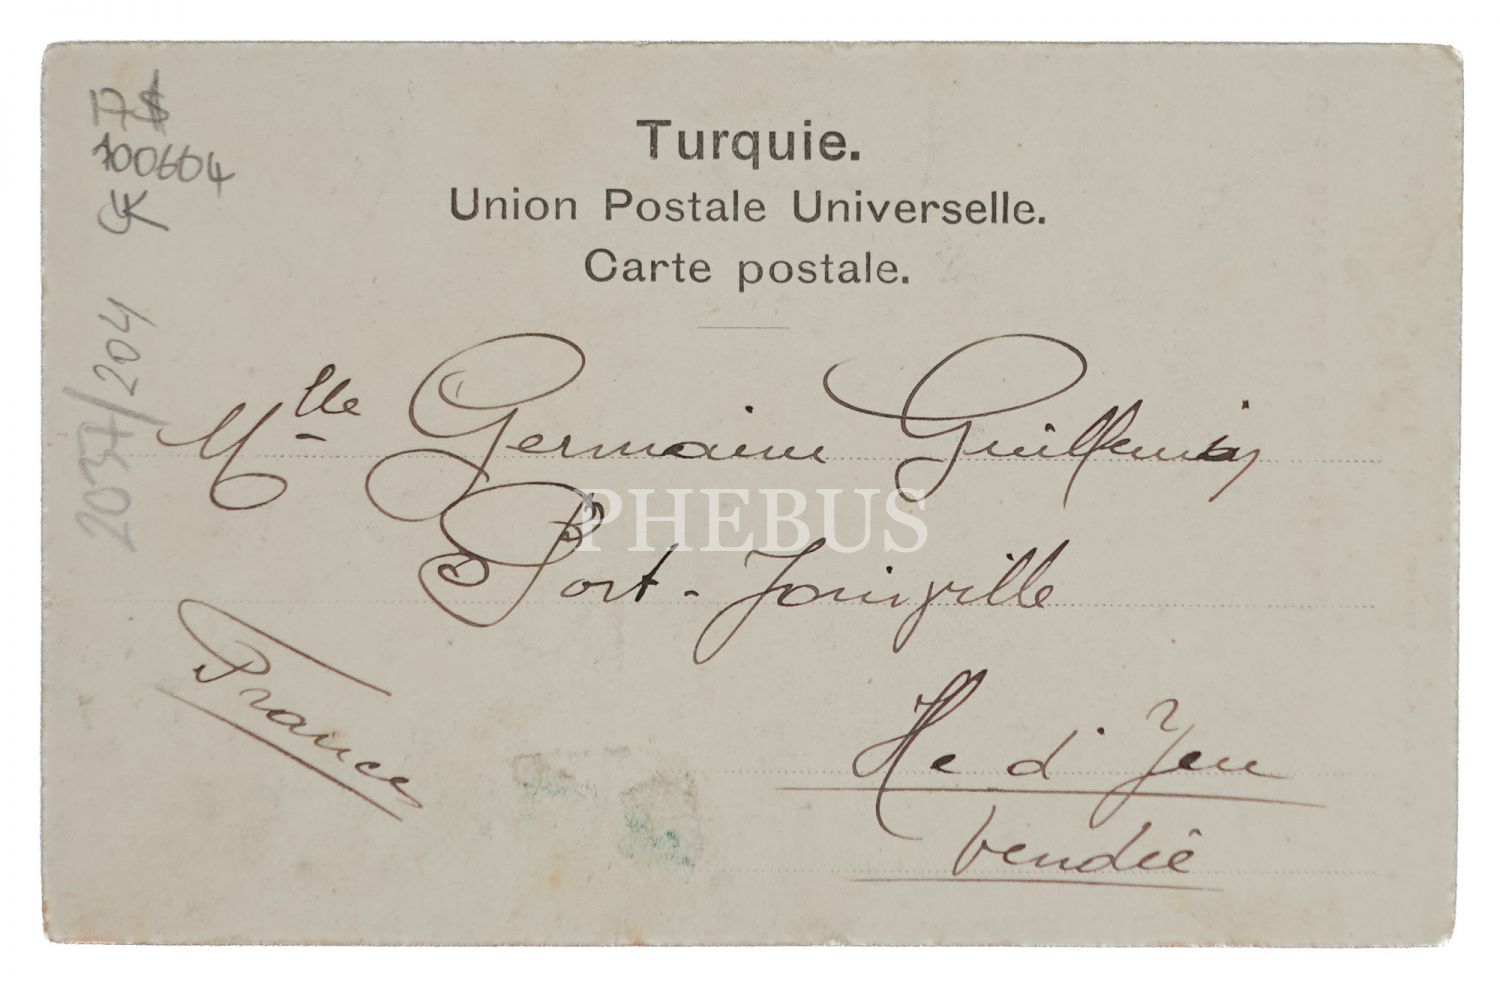 17$
100604
2037/204
Turquie.
Union Postale Universelle.
Carte postale.
Mlle Germaine Guillemin
PHEBUS
Port-Joinville
Ile d'Yeu
Vendée
France